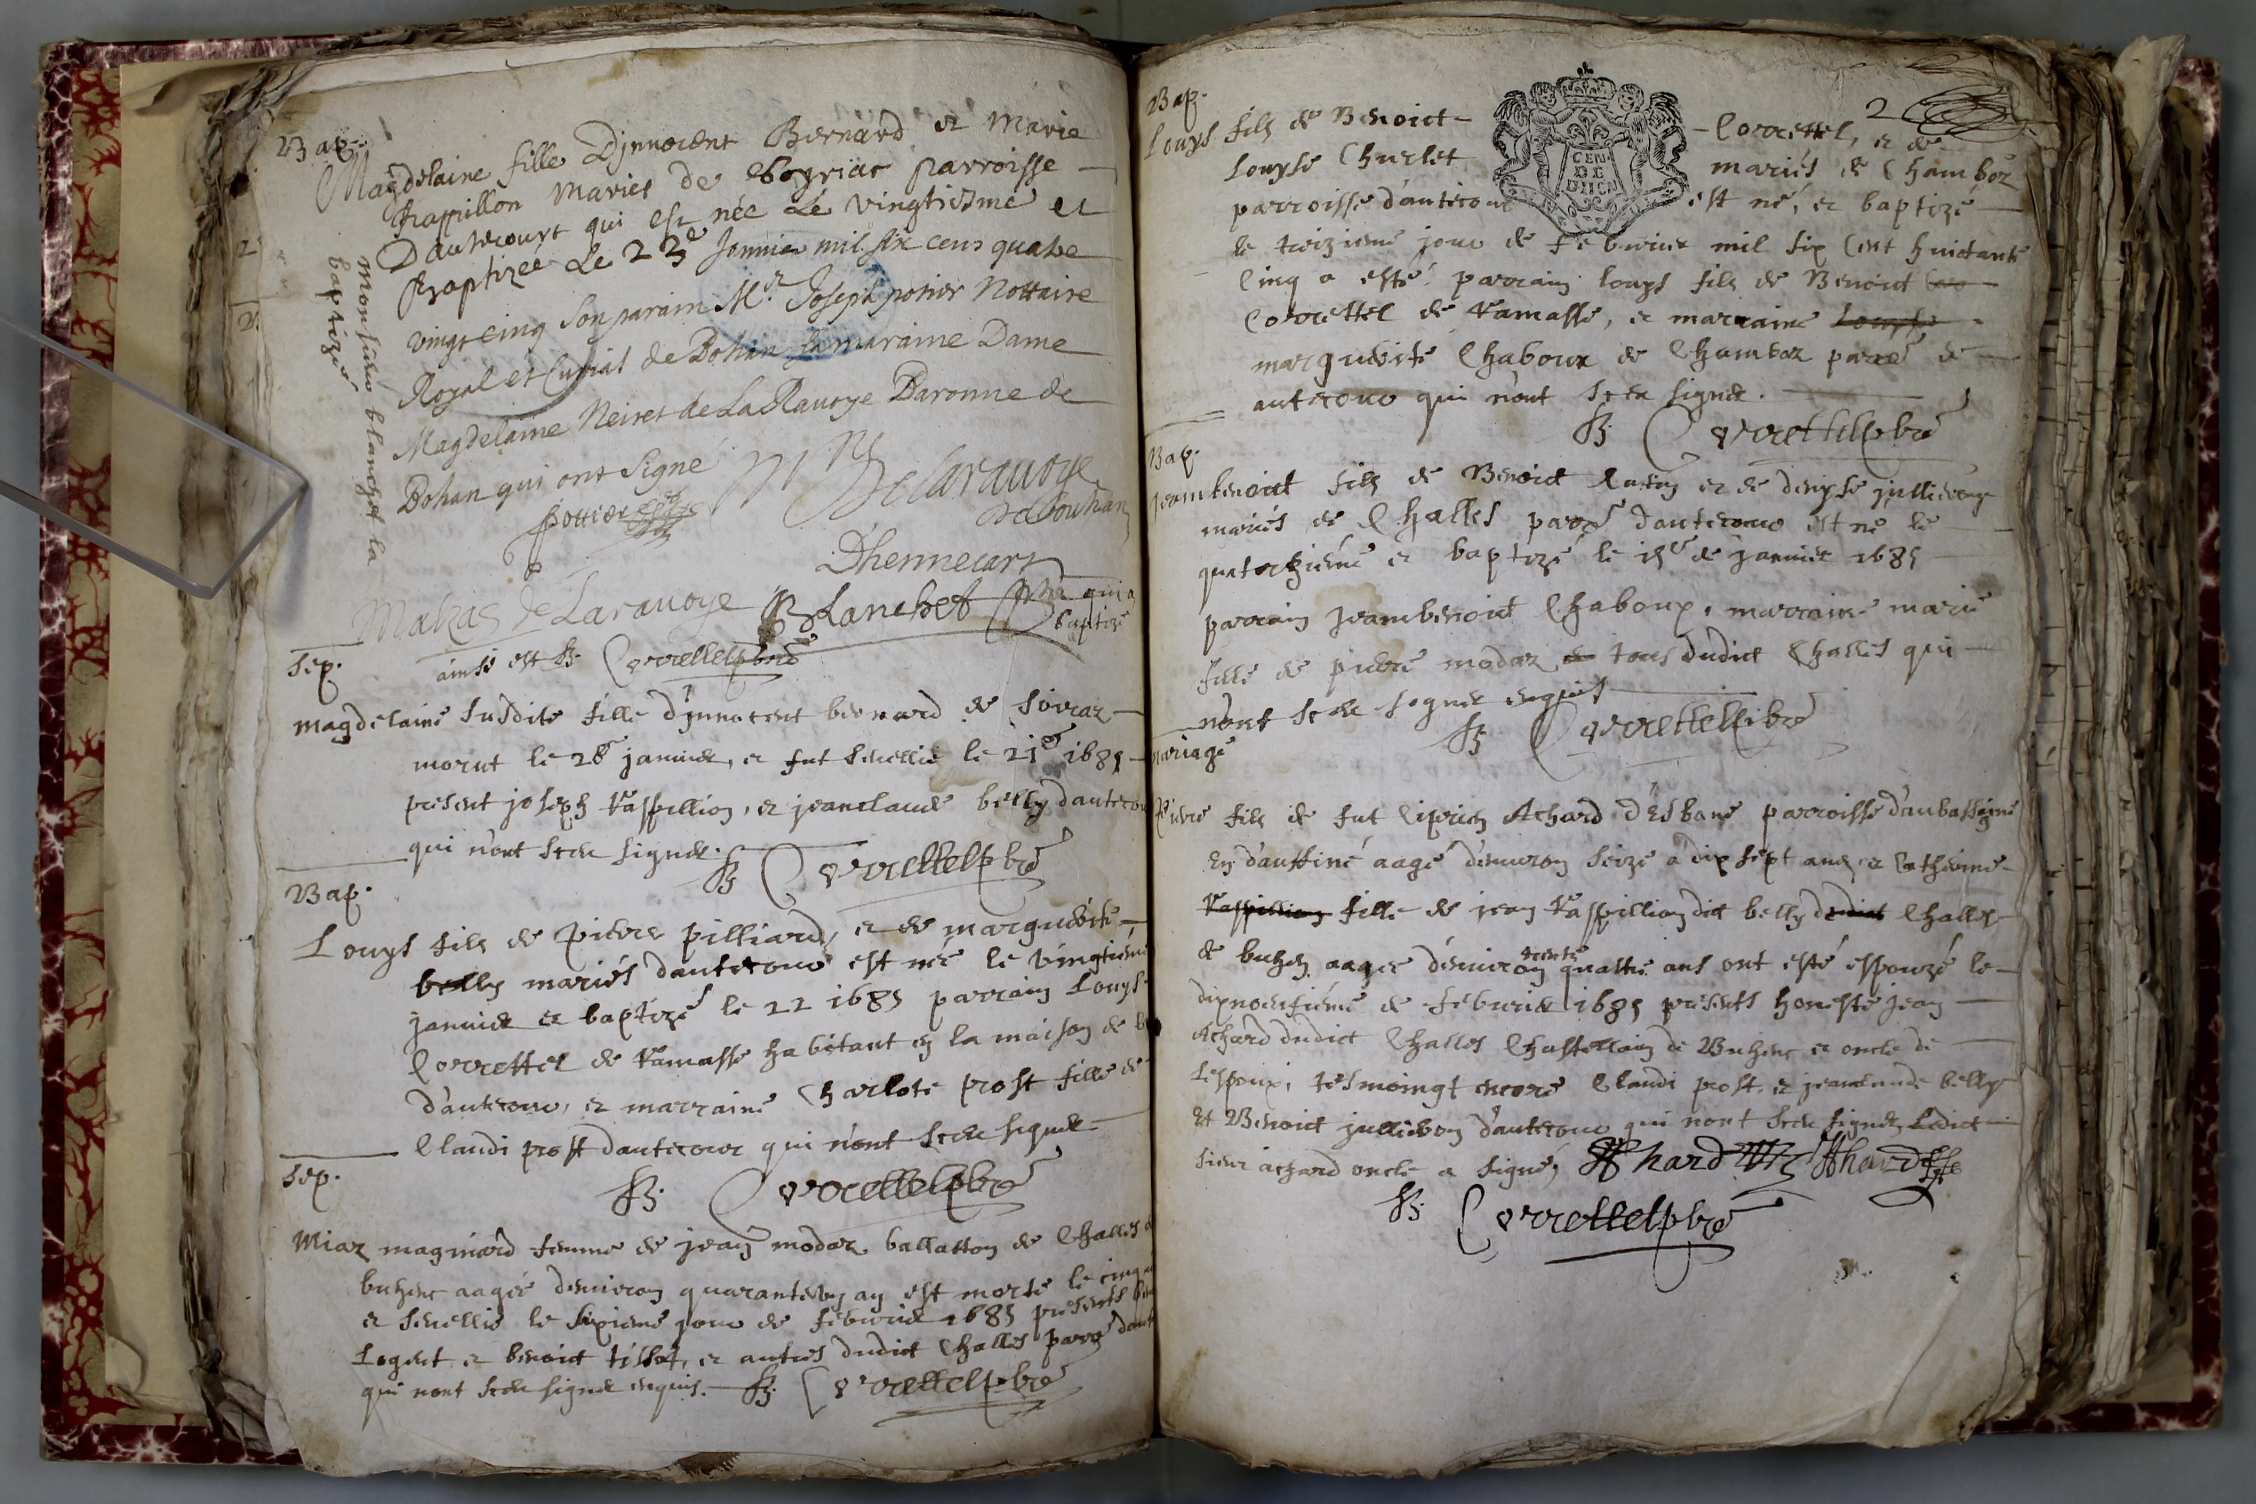 Bap.
Magdelaine fille Djnnocent Bernard et Marie
Raspillon Mariés de parroisse
Dautecourt qui est née Le vingtiesme et
Baptizée Le 23e Jenvier mil six cens quatre
vingt cinq Son parain Mr. Joseph potier Nottaire
Royal et Curial de Bohan sa maraine Dame
Magdelaine Neiret de La Ravoye Baronne de
Bohan qui ont Signé
Monsieur blanchet la
baptizé
pottier
Delaravoye
de bouhan
Dhennecart
de Laravoye
Blanchet pbre qui a
baptizé
ainsi est Correttel pbre
Sep.
magdelaine susdite fille d'jnnocent bernard de
morut le 20e janvier, et fut sevellie le 21e 1685
present joseph raspillion, et jeanclaude belly dautecou
qui n'ont sceu signer.
Correttel pbre
Bap.
Louys fils de pierre pilliard, et de marguerite
belly mariés dautecour est né le vingtieme
janvier et baptizé le 22 1685 parrain Louys
Correttel de ramasse habitant en la maison de
d'autecour, et marraine Charlote prost fille de
Claudi prost dautecour qui n'ont sceu signer
Correttel pbre
Sep.
Miaz magniard femme de jean modaz ballatton de Challes
buhenc aagée denviron quarante un an est morte le cinq
et sevellie le sixieme jour de febvrier 1685 presents
Logent et benoict tissot, et autres dudict Challes parre daut
qui nont sceu signer enquis. Correttel pbre
2
Bap.
Louys fils de Benoict Correttel, et de
Louyse Churlet mariés de Chamboz
parroisse d'autecour est né, et baptizé
le treizieme jour de febvrier mil six cent huictante
Cinq a esté parrain louys fils de Benoict
Correttel de ramasse, et marraine Louyse
marguerite Chaboux de Chamboz parre de
autecour qui n'ont sceu signer.
Correttel pbre
Bap.
jeanbenoict fils de Benoict et de denyse jullieron
mariés de Challes parre d'autecour est né le
quatorzieme et baptizé le 15e de janvier 1685
parrain jeanbenoict Chaboux, marraine marie
fille de pierre modaz tous dudict Challes qui
n'ont sceu signer enquis
Correttel pbre
mariage
Pierre fils de fut Ciprien Achard d'Esbane parroisse d'aubassagne
En dauffiné aagé d'environ seize a dix sept ans et Catherine
raspillion fille de jean raspillion dict belly dudict Challes
de buhen aagée d'environ trente quattre ans ont esté espouzé le
dixneufiéme de febvrier 1685 presents honeste jean
Achard dudict Challes Chastellain de Buhenc et oncle de
Lespoux, tesmoingt encore Claudi prost, et jeanclaude belly
Et Benoict jullieron d'autecour qui nont sceu signer, Ledict
sieur achard oncle a signé, Achard Achard
Correttel pbre